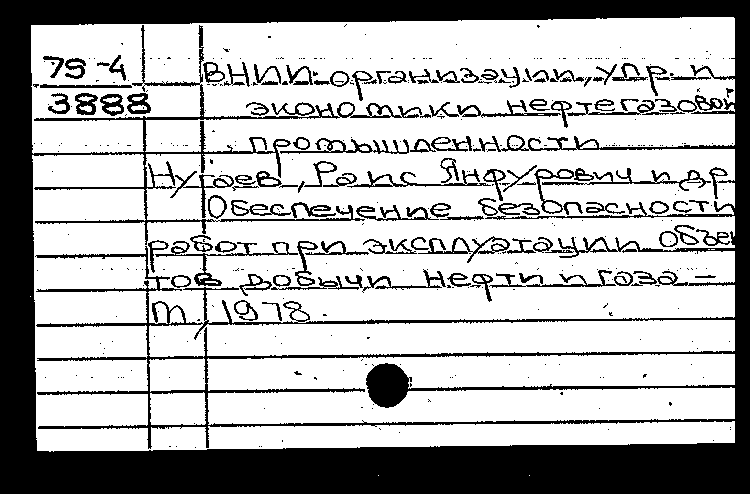 79-4 ВНИИ организации, упр. и
3888 экономики нефтегазовой
промышленности
Нугаев, Раис Янфурович и др
Обеспечение безопасности
работ при эксплуатации объек
тов добычи нефти и газа –
М, 1978.